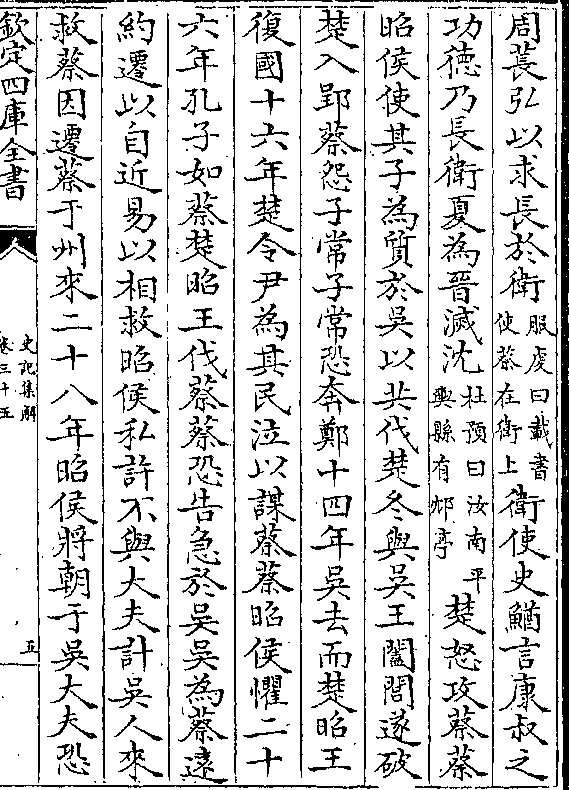 周萇弘以求長於衛服䖍曰載書使蔡在衛上衛使史鰌言康叔之
功徳乃長衛夏為晉滅沈杜預曰汝南平輿縣有䢴亭楚怒攻蔡蔡
昭侯使其子為質於吳以共伐楚冬與吳王闔閭遂破
楚入郢蔡怨子常子常恐奔鄭十四年吳去而楚昭王
復國十六年楚令尹為其民泣以謀蔡蔡昭侯懼二十
六年孔子如蔡楚昭王伐蔡蔡恐告急於吳吳為蔡遠
約遷以自近易以相救昭侯私許不與大夫計吳人來
救蔡因遷蔡于州來二十八年昭侯將朝于吳大夫恐
欽定四庫全書
史記集解
卷三十五
五